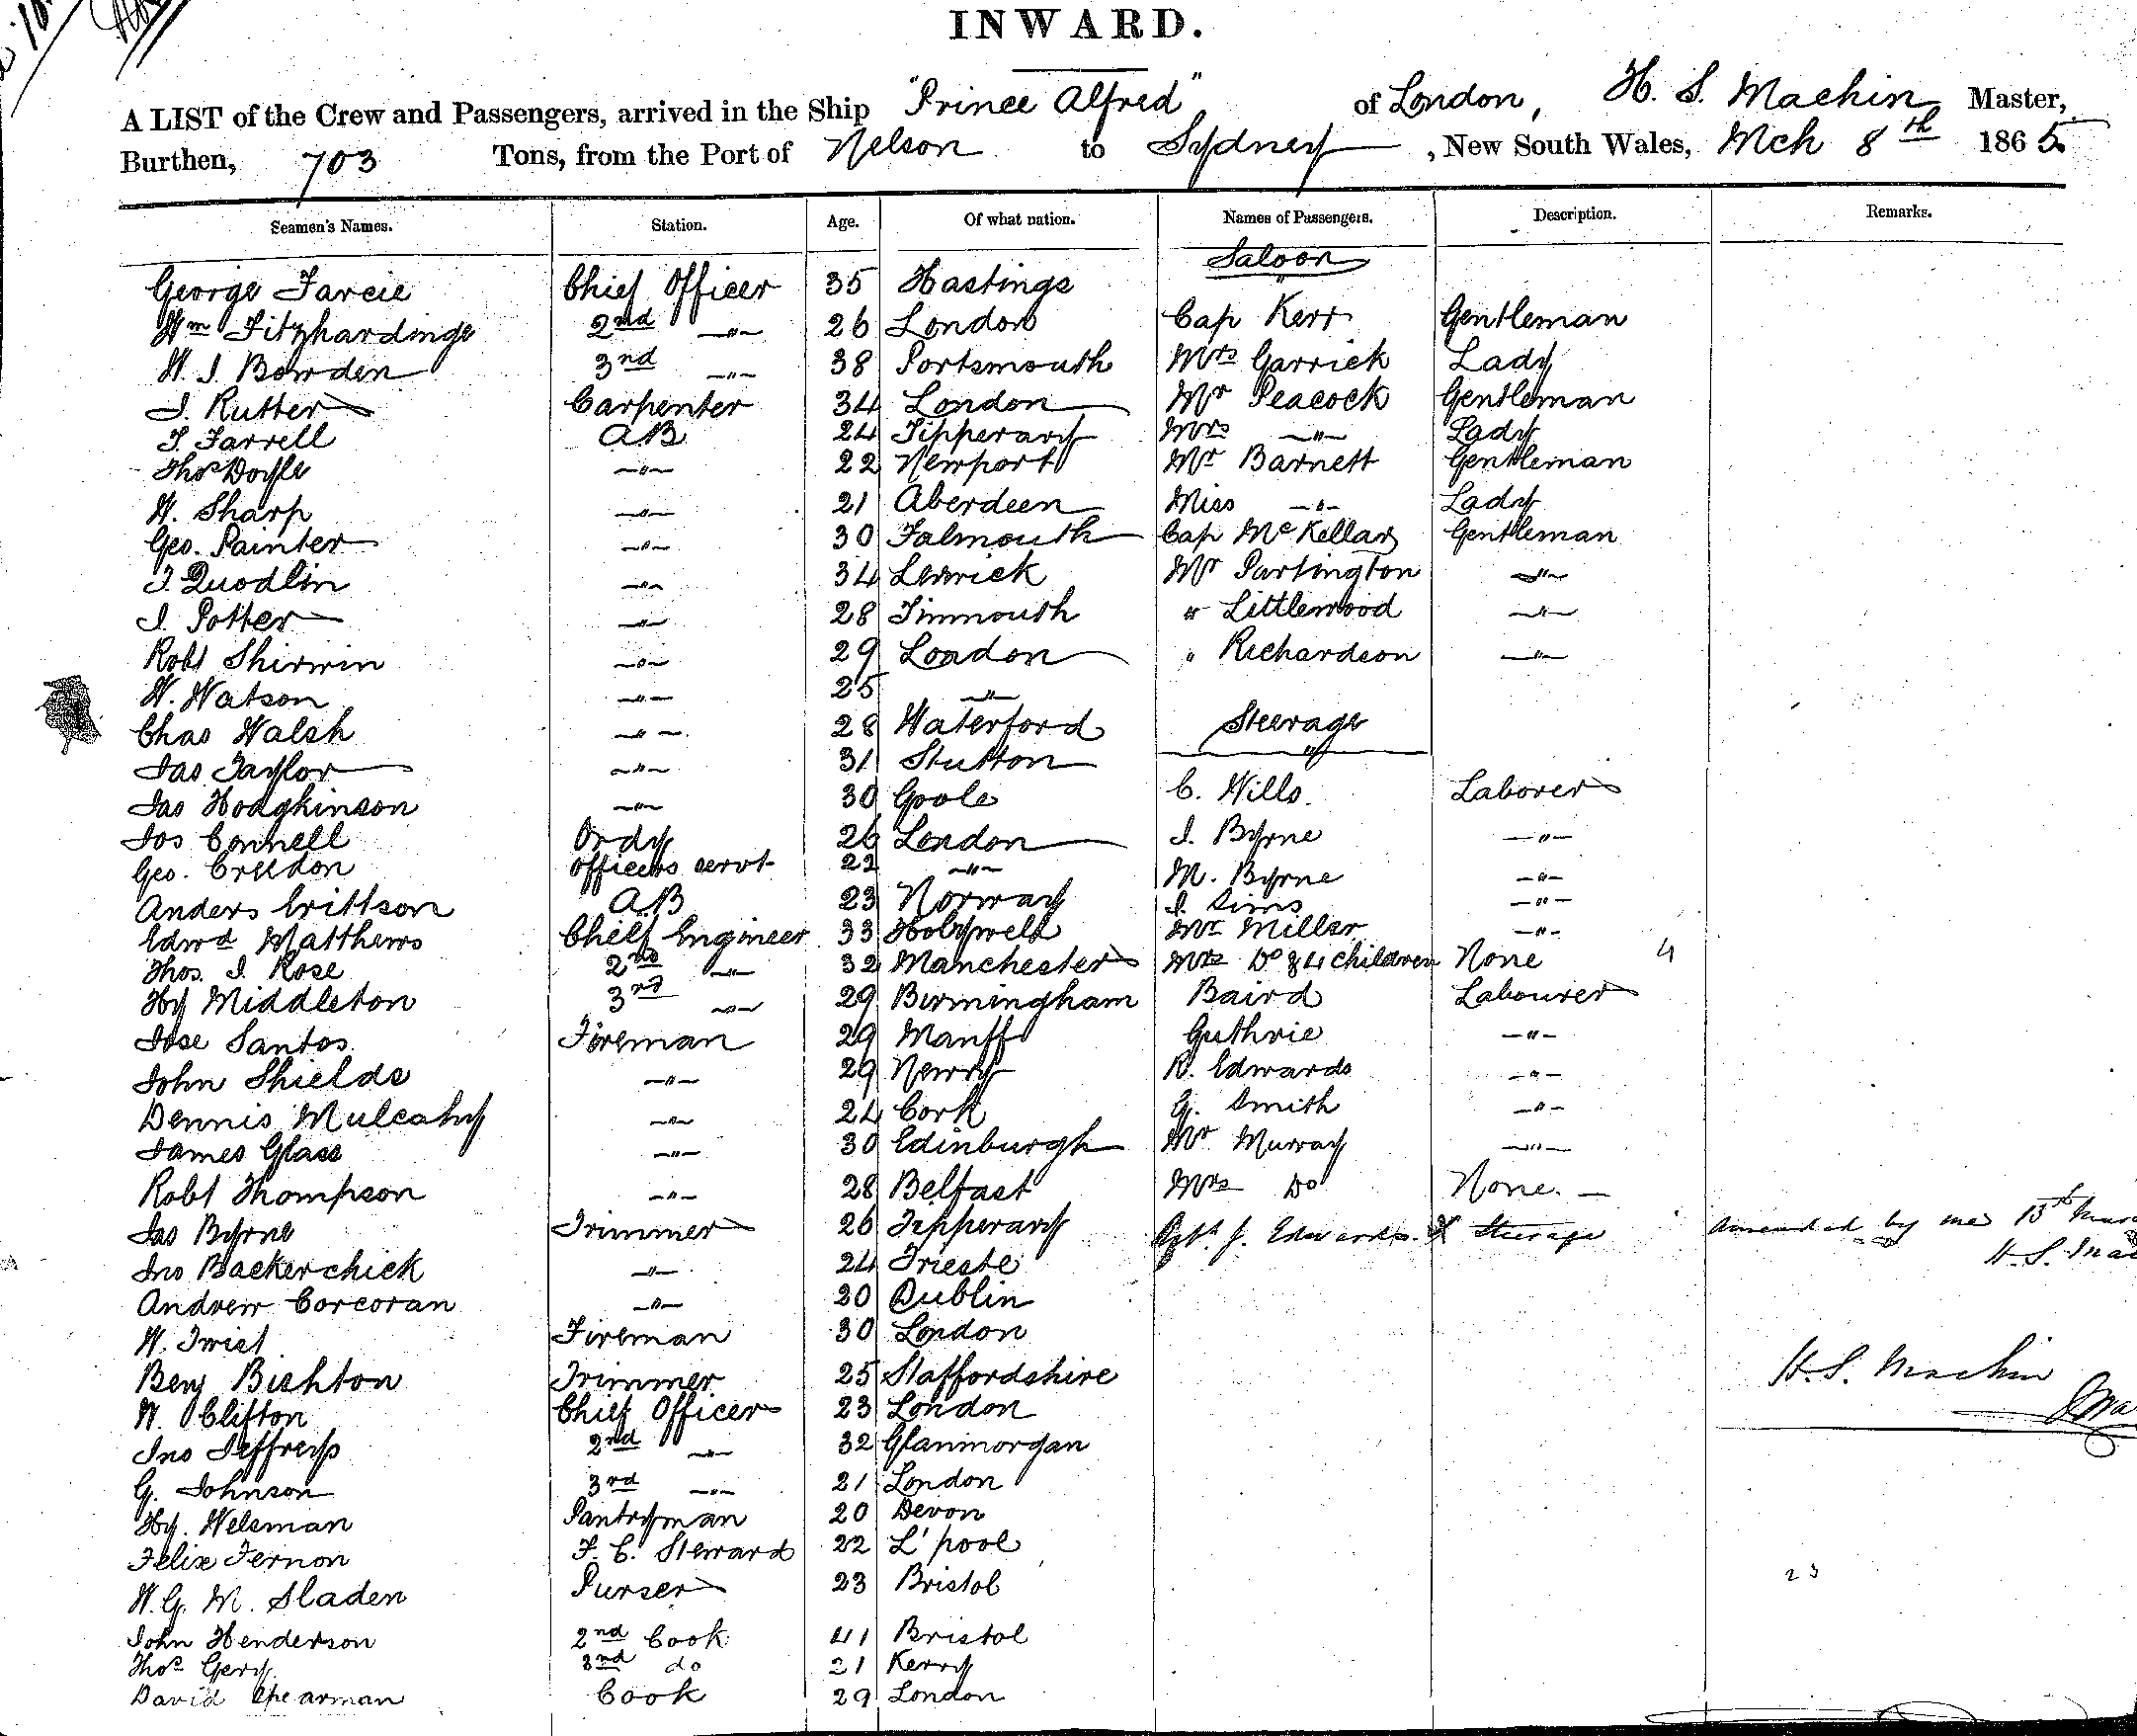 INWARD.
A LIST of the Crew and Passengers, arrived in the Ship "Prince Alfred" of London, H. S. Machin Master,
Burthen, 703 Tons, from the Port of Nelson to Sydney, New South Wales, Mch 8th 1865
Seamen's Names. Station. Age. Of what nation. Names of Passengers. Description. Remarks.
Saloon
George Farcie Chief Officer 35 Hastings
Wm Fitzhardinge 2nd —"— 26 London Cap Kerr Gentleman
W. J. Bowden 3rd —"— 38 Portsmouth Mrs Garrick Lady
J. Rutter Carpenter 34 London Mr Peacock Gentleman
T. Farrell AB 24 Tipperary Mrs —"— Lady
Thos Doyle —"— 22 Newport Mr Barnett Gentleman
W. Sharp —"— 21 Aberdeen Miss —"— Lady
Geo. Painter —"— 30 Falmouth Cap McKellar Gentleman
J. Quodlin —"— 34 Lerwick Mr Partington —"—
J. Potter —"— 28 Tinmouth " Littlewood —"—
Robt Shirwin —"— 29 London " Richardson —"—
W. Watson —"— 25 —"—
Chas Walsh —"— 28 Waterford Steerage
Jas Taylor —"— 31 Stutton
Jas Hodgkinson —"— 30 Goole C. Wills Laborer
Jos Connell Ordy 26 London J. Byrne —"—
Geo. Creedon Officers servt 22 —"— M. Byrne —"—
Anders Erittson AB 23 Norway J. Sims —"—
Edwd Matthews Chief Engineer 33 Holywell Mr Miller —"—
Thos. J. Rose 2nd —"— 32 Manchester Mrs Do & 4 children None 4
Hy Middleton 3rd —"— 29 Birmingham Baird Labourer
Jose Santos Fireman 29 Guthrie —"—
John Shields —"— 29 Newry R. Edwards —"—
Dennis Mulcahy —"— 24 Cork G. Smith —"—
James Glass —"— 30 Edinburgh Mr Murray —"—
Robt Thompson —"— 28 Belfast Mrs Do None. —
Jas Byrne Trimmer 26 Tipperary Capt. J. Edwards. Steerage Amended by me 13th
Jno Backerchick —"— 24 Trieste H. S.
Andrew Corcoran —"— 20 Dublin
W. Twist Fireman 30 London
Benj Bishton Trimmer 25 Staffordshire H. S. Machin
W. Clifton Chief Officer 23 London
Jno Jeffreys 2nd —"— 32 Glanmorgan
G. Johnson 3rd —"— 21 London
Hy. Welsman Pantryman 20 Devon
Felix Fernon F. C. Steward 22 L'pool
W. G. M. Sladen Purser 23 Bristol 23
John Henderson 2nd Cook 41 Bristol
Thos Gery 3rd do 21 Kerry
David Spearman Cook 29 London